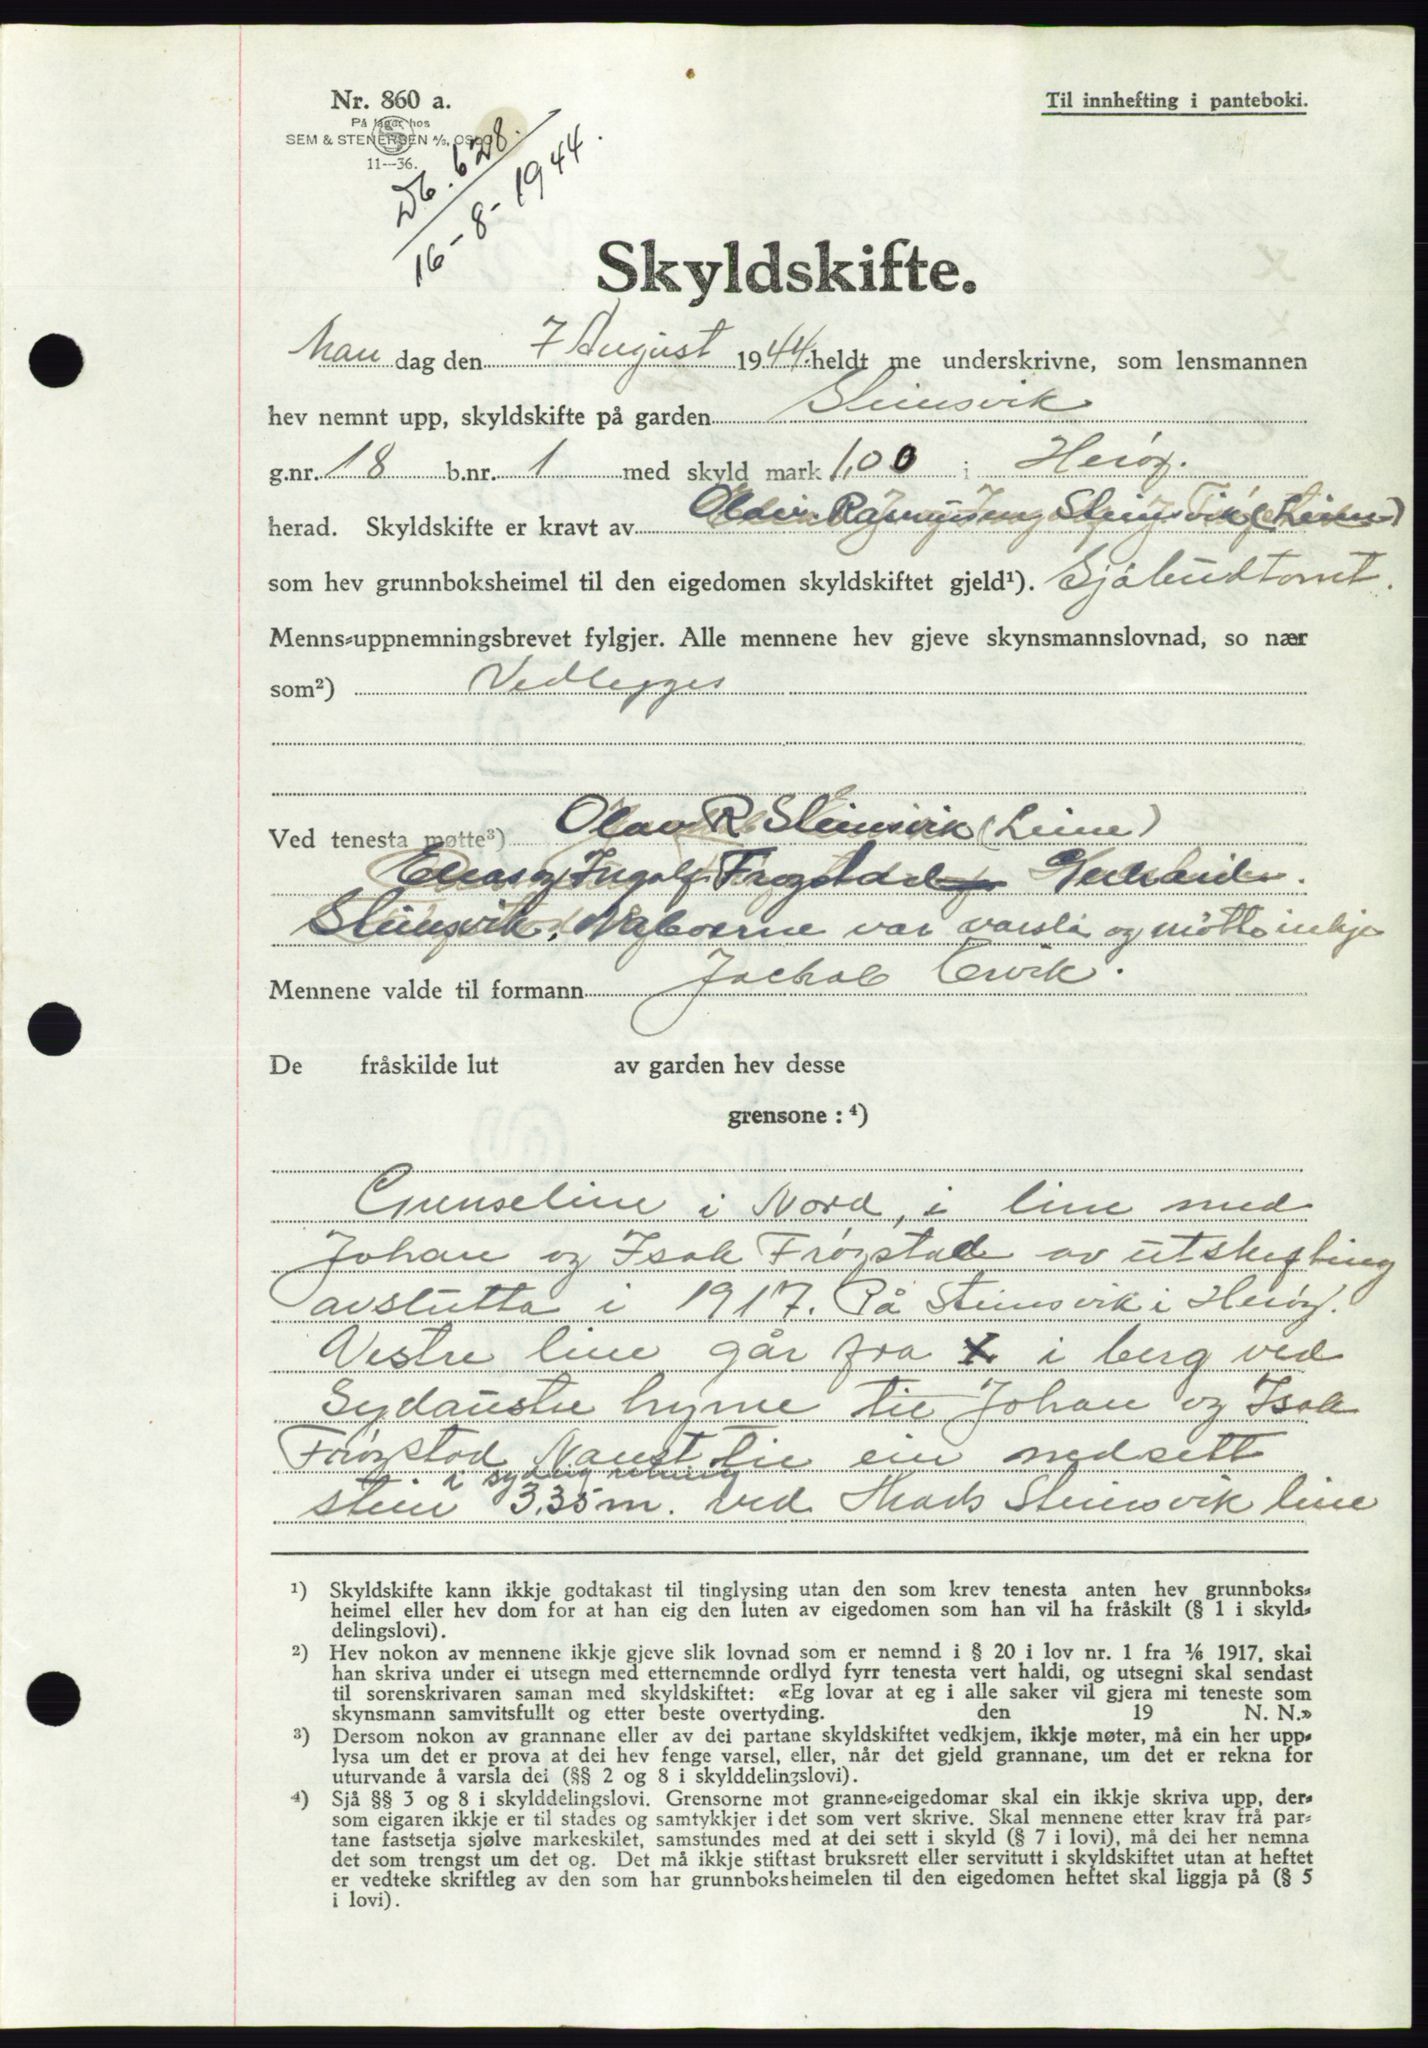 Nr. 860 a.
På lager hos
SEM & STENERSEN A/S, OSLO
11—36.
Til innhefting i panteboki.
Db. 628.
16-8-1944.
Skyldskifte.
Man dag den 7 August 1944. heldt me underskrivne, som lensmannen
hev nemnt upp, skyldskifte på garden Steinsvik
g.nr. 18 b.nr. 1 med skyld mark 1,00 i Herøy.
herad. Skyldskifte er kravt av Steinsvik (Leine)
som hev grunnboksheimel til den eigedomen skyldskiftet gjeld¹). Sjåbudtomt.
Menns-uppnemningsbrevet fylgjer. Alle mennene hev gjeve skynsmannslovnad, so nær
som²) Vedlegges
Ved tenesta møtte³) Olav R Steinsvik (Leine)
Elias og Ingolf Frøystad
Steinsvik. Naboerne var varsla og møtte inkje
Mennene valde til formann Jachob Ervik.
De fråskilde lut av garden hev desse
grensone : ⁴)
Grenseline i Nord, i line med
Johan og Isak Frøystad av utskifting
avslutta i 1917. På Steinsvik i Herøy.
Vestre line går fra X i berg ved
Sydaustre hyrne til Johan og Isak
Frøystad Naust til ein nedsett
i sydlig retning
stein 3,35 m. ved Mads Steinsvik line
¹) Skyldskifte kann ikkje godtakast til tinglysing utan den som krev tenesta anten hev grunnboks-
heimel eller hev dom for at han eig den luten av eigedomen som han vil ha fråskilt (§ 1 i skyld-
delingslovi).
²) Hev nokon av mennene ikkje gjeve slik lovnad som er nemnd i § 20 i lov nr. 1 fra 1/6 1917, skal
han skriva under ei utsegn med etternemnde ordlyd fyrr tenesta vert haldi, og utsegni skal sendast
til sorenskrivaren saman med skyldskiftet: «Eg lovar at eg i alle saker vil gjera mi teneste som
skynsmann samvitsfullt og etter beste overtyding. den 19 N. N.»
³) Dersom nokon av grannane eller av dei partane skyldskiftet vedkjem, ikkje møter, må ein her upp-
lysa um det er prova at dei hev fenge varsel, eller, når det gjeld grannane, um det er rekna for
uturvande å varsla dei (§§ 2 og 8 i skylddelingslovi).
⁴) Sjå §§ 3 og 8 i skylddelingslovi. Grensorne mot granne-eigedomar skal ein ikkje skriva upp, der-
som eigaren ikkje er til stades og samtykkjer i det som vert skrive. Skal mennene etter krav frå par-
tane fastsetja sjølve markeskilet, samstundes med at dei sett i skyld (§ 7 i lovi), må dei her nemna
det som trengst um det og. Det må ikkje stiftast bruksrett eller servitutt i skyldskiftet utan at heftet
er vedteke skriftleg av den som har grunnboksheimelen til den eigedomen heftet skal liggja på (§ 5
i lovi).